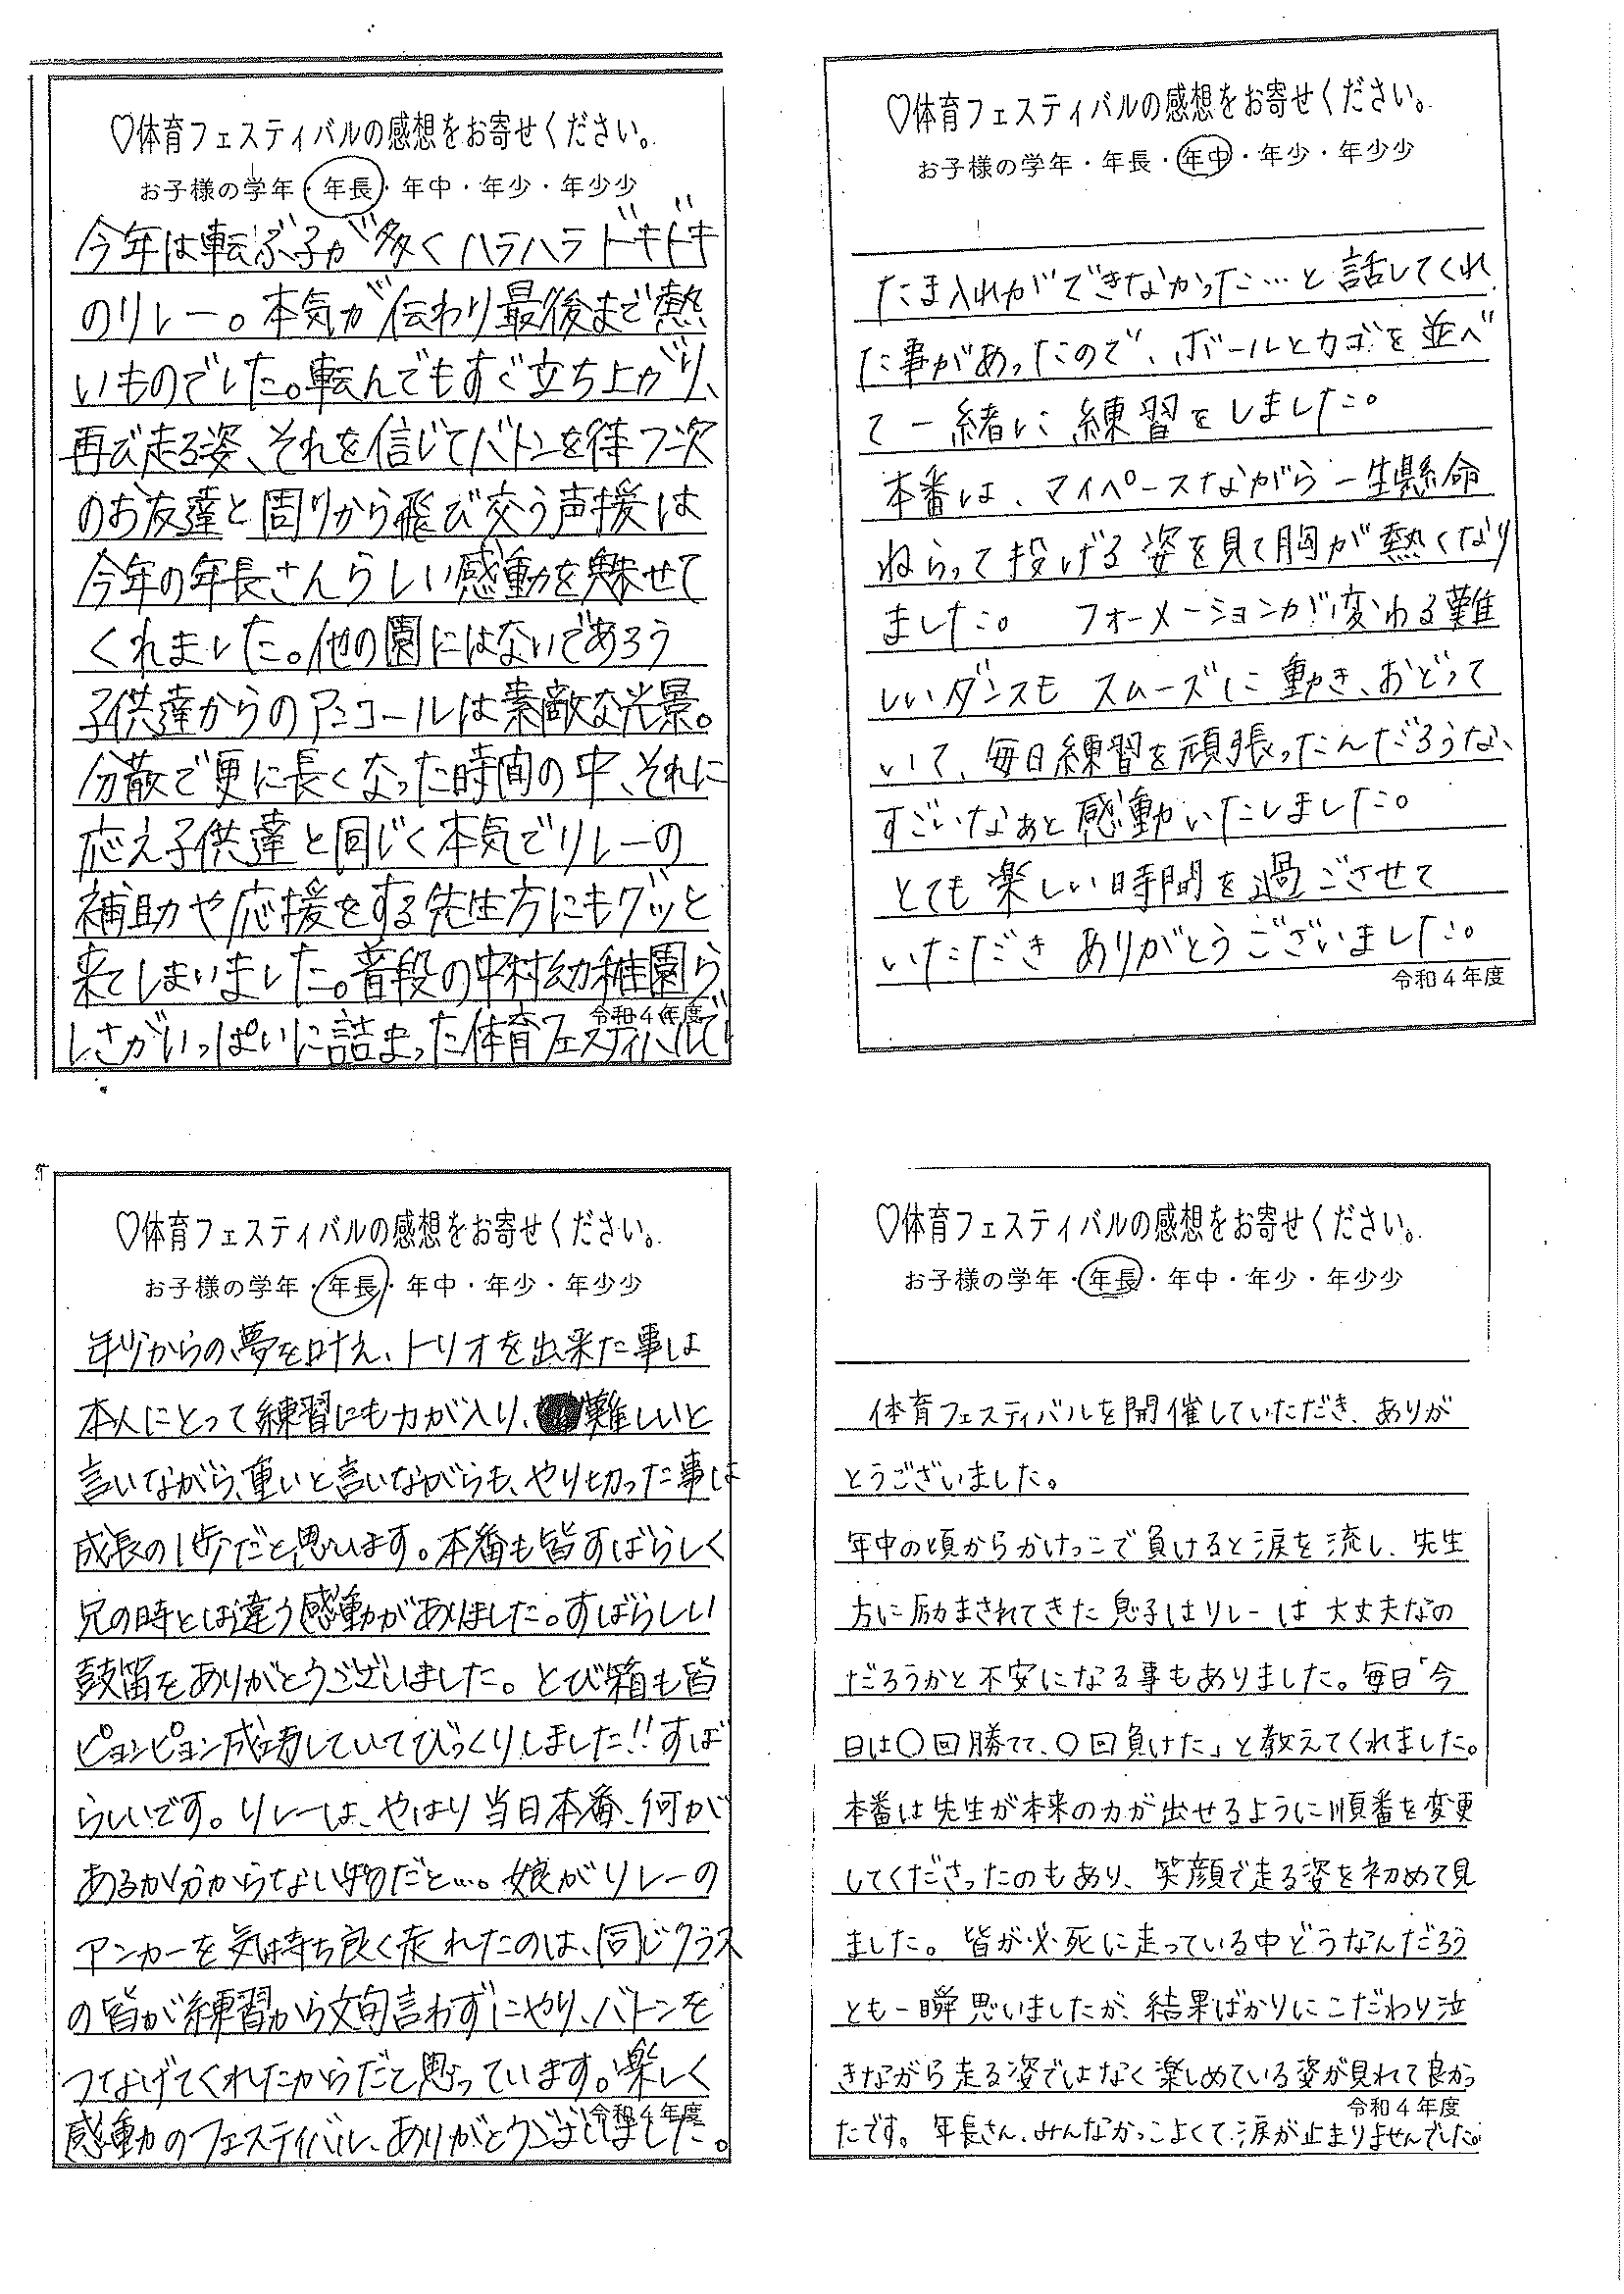 ♡体育フェスティバルの感想をお寄せください。
お子様の学年・年長・年中・年少・年少少
今年は転ぶ子が多くハラハラドキドキ
のリレー。本気が伝わり最後まで熱
いものでした。転んでもすぐ立ち上がり、
再び走る姿、それを信じてバトンを待つ次
のお友達と周りから飛び交う声援は
今年の年長さんらしい感動を魅せて
くれました。他の園にはないであろう
子供達からのアンコールは素敵な光景。
分散で更に長くなった時間の中、それに
応え子供達と同じく本気でリレーの
補助や応援をする先生方にもグッと
来てしまいました。普段の中村幼稚園ら
しさがいっぱいに詰まった体育フェスティバルでし
令和4年度
♡体育フェスティバルの感想をお寄せください。
お子様の学年・年長・年中・年少・年少少
たま入れができなかった…と話してくれ
た事があったので、ボールとカゴを並べ
て一緒に練習をしました。
本番は、マイペースながら一生懸命
ねらって投げる姿を見て胸が熱くなり
ました。 フォーメーションが変わる難
しいダンスもスムーズに動き、おどって
いて、毎日練習を頑張ったんだろうな、
すごいなぁと感動いたしました。
とても楽しい時間を過ごさせて
いただきありがとうございました。
令和4年度
♡体育フェスティバルの感想をお寄せください。
お子様の学年・年長・年中・年少・年少少
年少からの夢を叶え、トリオを出来た事は
本人にとって練習にも力が入り、難しいと
言いながら、重いと言いながらも、やり切った事は
成長の1歩だと思います。本番も皆すばらしく
兄の時とは違う感動がありました。すばらしい
鼓笛をありがとうございました。とび箱も皆
ピョンピョン成功していてびっくりしました!!すば
らしいです。リレーは、やはり当日本番、何が
あるか分からない物だと…。娘がリレーの
アンカーを気持ち良く走れたのは、同じクラス
の皆が練習から文句言わずにやり、バトンを
つなげてくれたからだと思っています。楽しく
感動のフェスティバル、ありがとうございました。
令和4年度
♡体育フェスティバルの感想をお寄せください。
お子様の学年・年長・年中・年少・年少少
体育フェスティバルを開催していただき、ありが
とうございました。
年中の頃からかけっこで負けると涙を流し、先生
方に励まされてきた息子はリレーは大丈夫なの
だろうかと不安になる事もありました。毎日「今
日は〇回勝てて、〇回負けた」と教えてくれました。
本番は先生が本来の力が出せるように順番を変更
してくださったのもあり、笑顔で走る姿を初めて見
ました。皆が必死に走っている中どうなんだろう
とも一瞬思いましたが、結果ばかりにこだわり泣
きながら走る姿ではなく楽しめている姿が見れて良かっ
令和4年度
たです。年長さん、みんなかっこよくて涙が止まりませんでした。